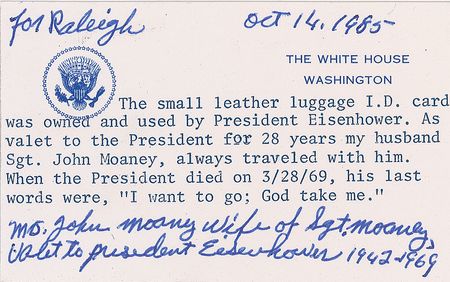 for Raleigh
Oct 14. 1985
THE WHITE HOUSE
WASHINGTON
The small leather luggage I.D. card
was owned and used by President Eisenhower. As
valet to the President for 28 years my husband
Sgt. John Moaney, always traveled with him.
When the President died on 3/28/69, his last
words were, "I want to go; God take me."
Mrs. John Moaney wife of Sgt. Moaney,
Valet to president Eisenhower 1942-1969